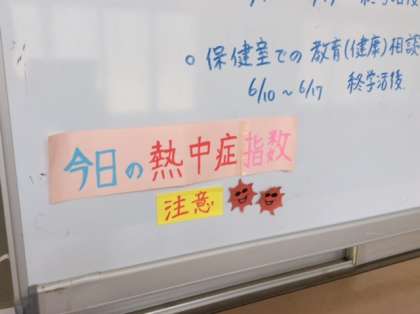 ○ 保健室での教育(健康)相談
6/10～6/17 終学活後
今日の熱中症指数
注意